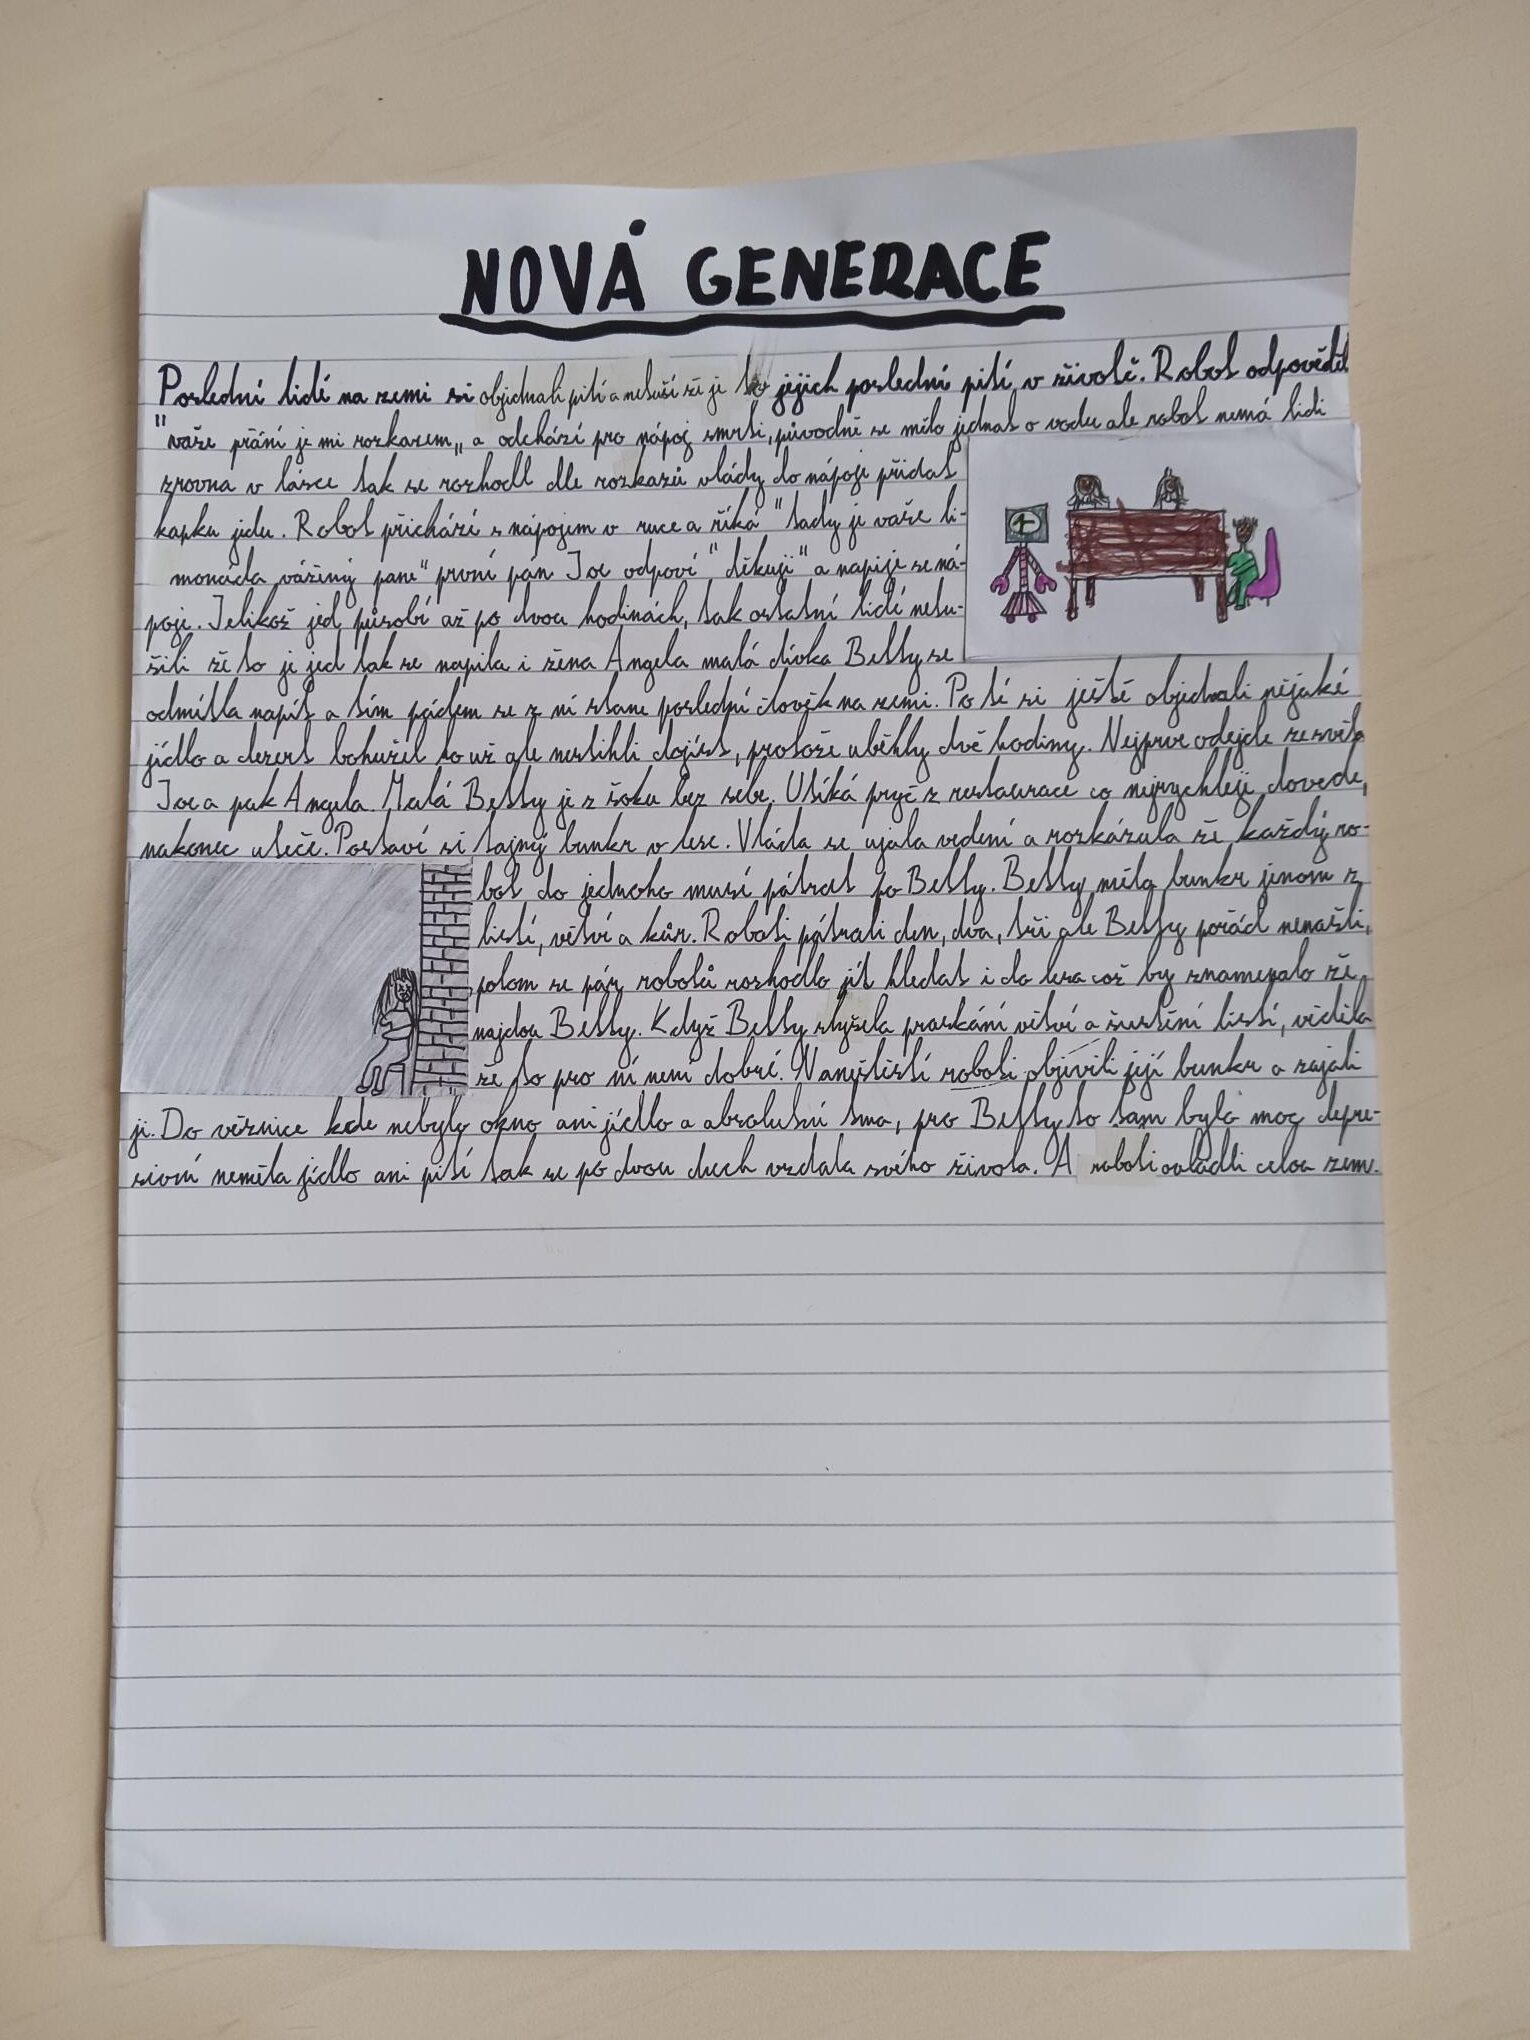 NOVÁ GENERACE
Poslední lidé na zemi si objednali pití a netuší že je to jejich poslední pití v životě. Robot odpověděl
"vaše přání je mi rozkazem„ a odchází pro nápoj smrti, původně se mělo jednat o vodu ale robot nemá lidi
zrovna v lásce tak se rozhodl dle rozkazů vlády do nápoje přidat
kapku jedu. Robot přichází s nápojem v ruce a říká "tady je vaše li-
monáda vážený pane" první pan Joe odpoví "děkuji" a napije se ná-
poje. Jelikož jed působí až po dvou hodinách, tak ostatní lidé netu-
šili že to je jed tak se napila i žena Angela malá dívka Betty se
odmítla napít a tím pádem se z ní stane poslední člověk na zemi. Po té si ještě objednali nějaké
jídlo a dezert bohužel to už ale nestihli dojíst, protože uběhly dvě hodiny. Nejprve odejde ze světa
Joe a pak Angela. Malá Betty je z šoku bez sebe. Utíká pryč z restaurace co nejrychleji dovede,
nakonec uteče. Postaví si tajný bunkr v lese. Vláda se ujala vedení a rozkázala že každý ro-
bot do jednoho musí pátrat po Betty. Betty měla bunkr jenom z
listí, větví a kůr. Roboti pátrali den, dva, tři ale Betty pořád nenašli,
potom se pár robotů rozhodlo jít hledat i do lesa což by znamenalo že
najdou Betty. Když Betty slyšela praskání větví a šustění listí, věděla
že to pro ní není dobré. Naneštěstí roboti objevili její bunkr a zajali
ji. Do věznice kde nebyly okno ani jídlo a absolutní tma, pro Betty to tam bylo moc depre-
sivní neměla jídlo ani pití tak se po dvou dnech vzdala svého života. A roboti ovládli celou zemi.